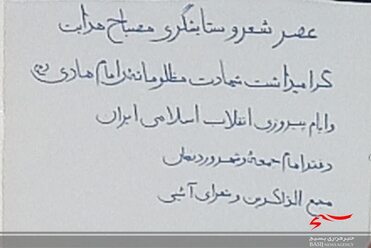 عصر شعر و ستایشگری مصباح هدایت
گرامیداشت شهادت مظلومانه امام هادی (ع)
و ایام پیروزی انقلاب اسلامی ایران
دفتر امام جمعه شهر وردنجان
مجمع الذاکرین و شعرای آئینی
خبرگزاری بسیج
BASIJ NEWS AGENCY